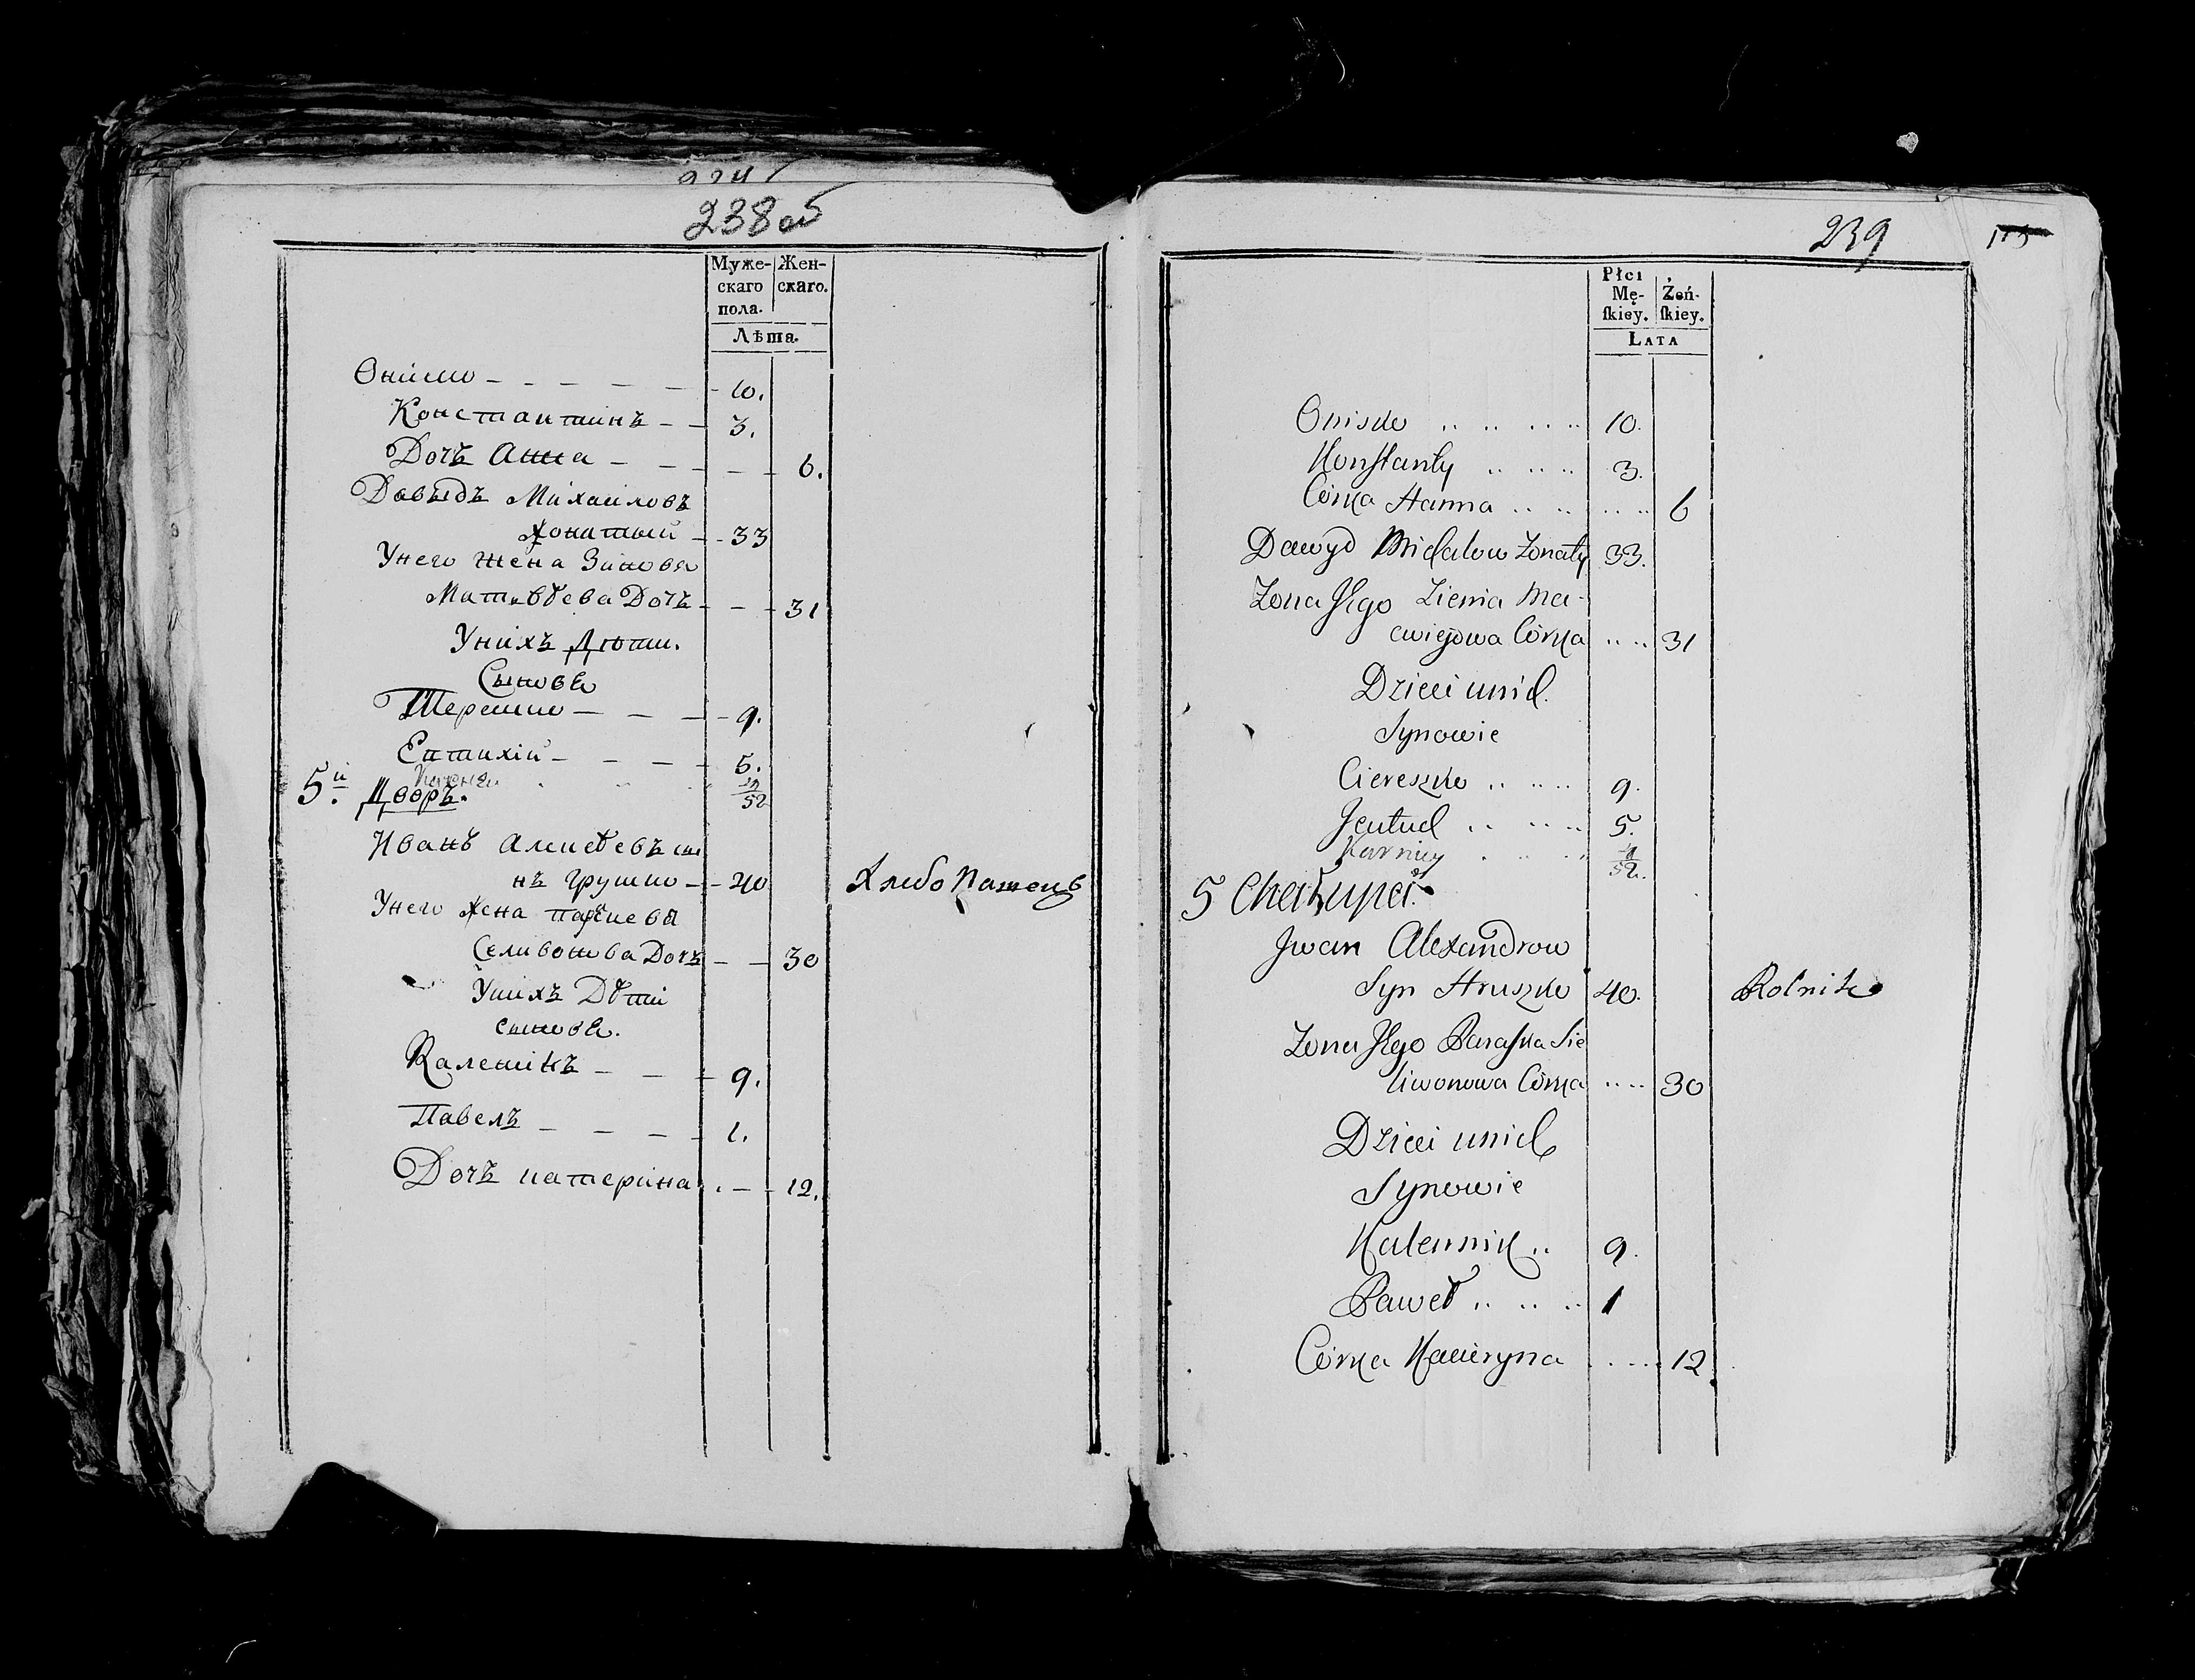 238об
Муже- Жен-
скаго скаго.
пола.
Лѣта.
Ониско 10.
Константинъ 3.
Дочъ Анна 6.
Давыдъ Михаиловъ
Жонатый 33
Унего жена Зиновя
Матвѣева Дочъ 31
Унихъ Дѣти.
Сынове
Терешко 9.
Евтихій 5.
52
5й Дворъ.
Иванъ
нъ Грушко 40 Хлебопашецъ
Унего жена
Селивонова Дочъ 30
Унихъ Дѣти
сынове.
Каленикъ 9.
Павелъ 1.
Дочъ катерина 12.
239
113
Płci
Mę- Żeń-
ſkiey. ſkiey.
Lata
Onisko 10.
Konstanty 3.
Córka Hanna 6
Dawyd Michałow Zonaty 33.
Zona Jego Zienia Ma-
cwiejowa Córka 31
Dzieci unich.
Synowie
Ciereszko 9.
Jeutuch 5.
52.
5 Chałupa.
Jwan Alexandrow
Syn Hruszko 40. Rolnik
Zona Jego Paraska Sie
liwonowa Córka 30
Dzieci unich
Synowie
Kalennik 9.
Paweł 1
Córka Kacieryna 12